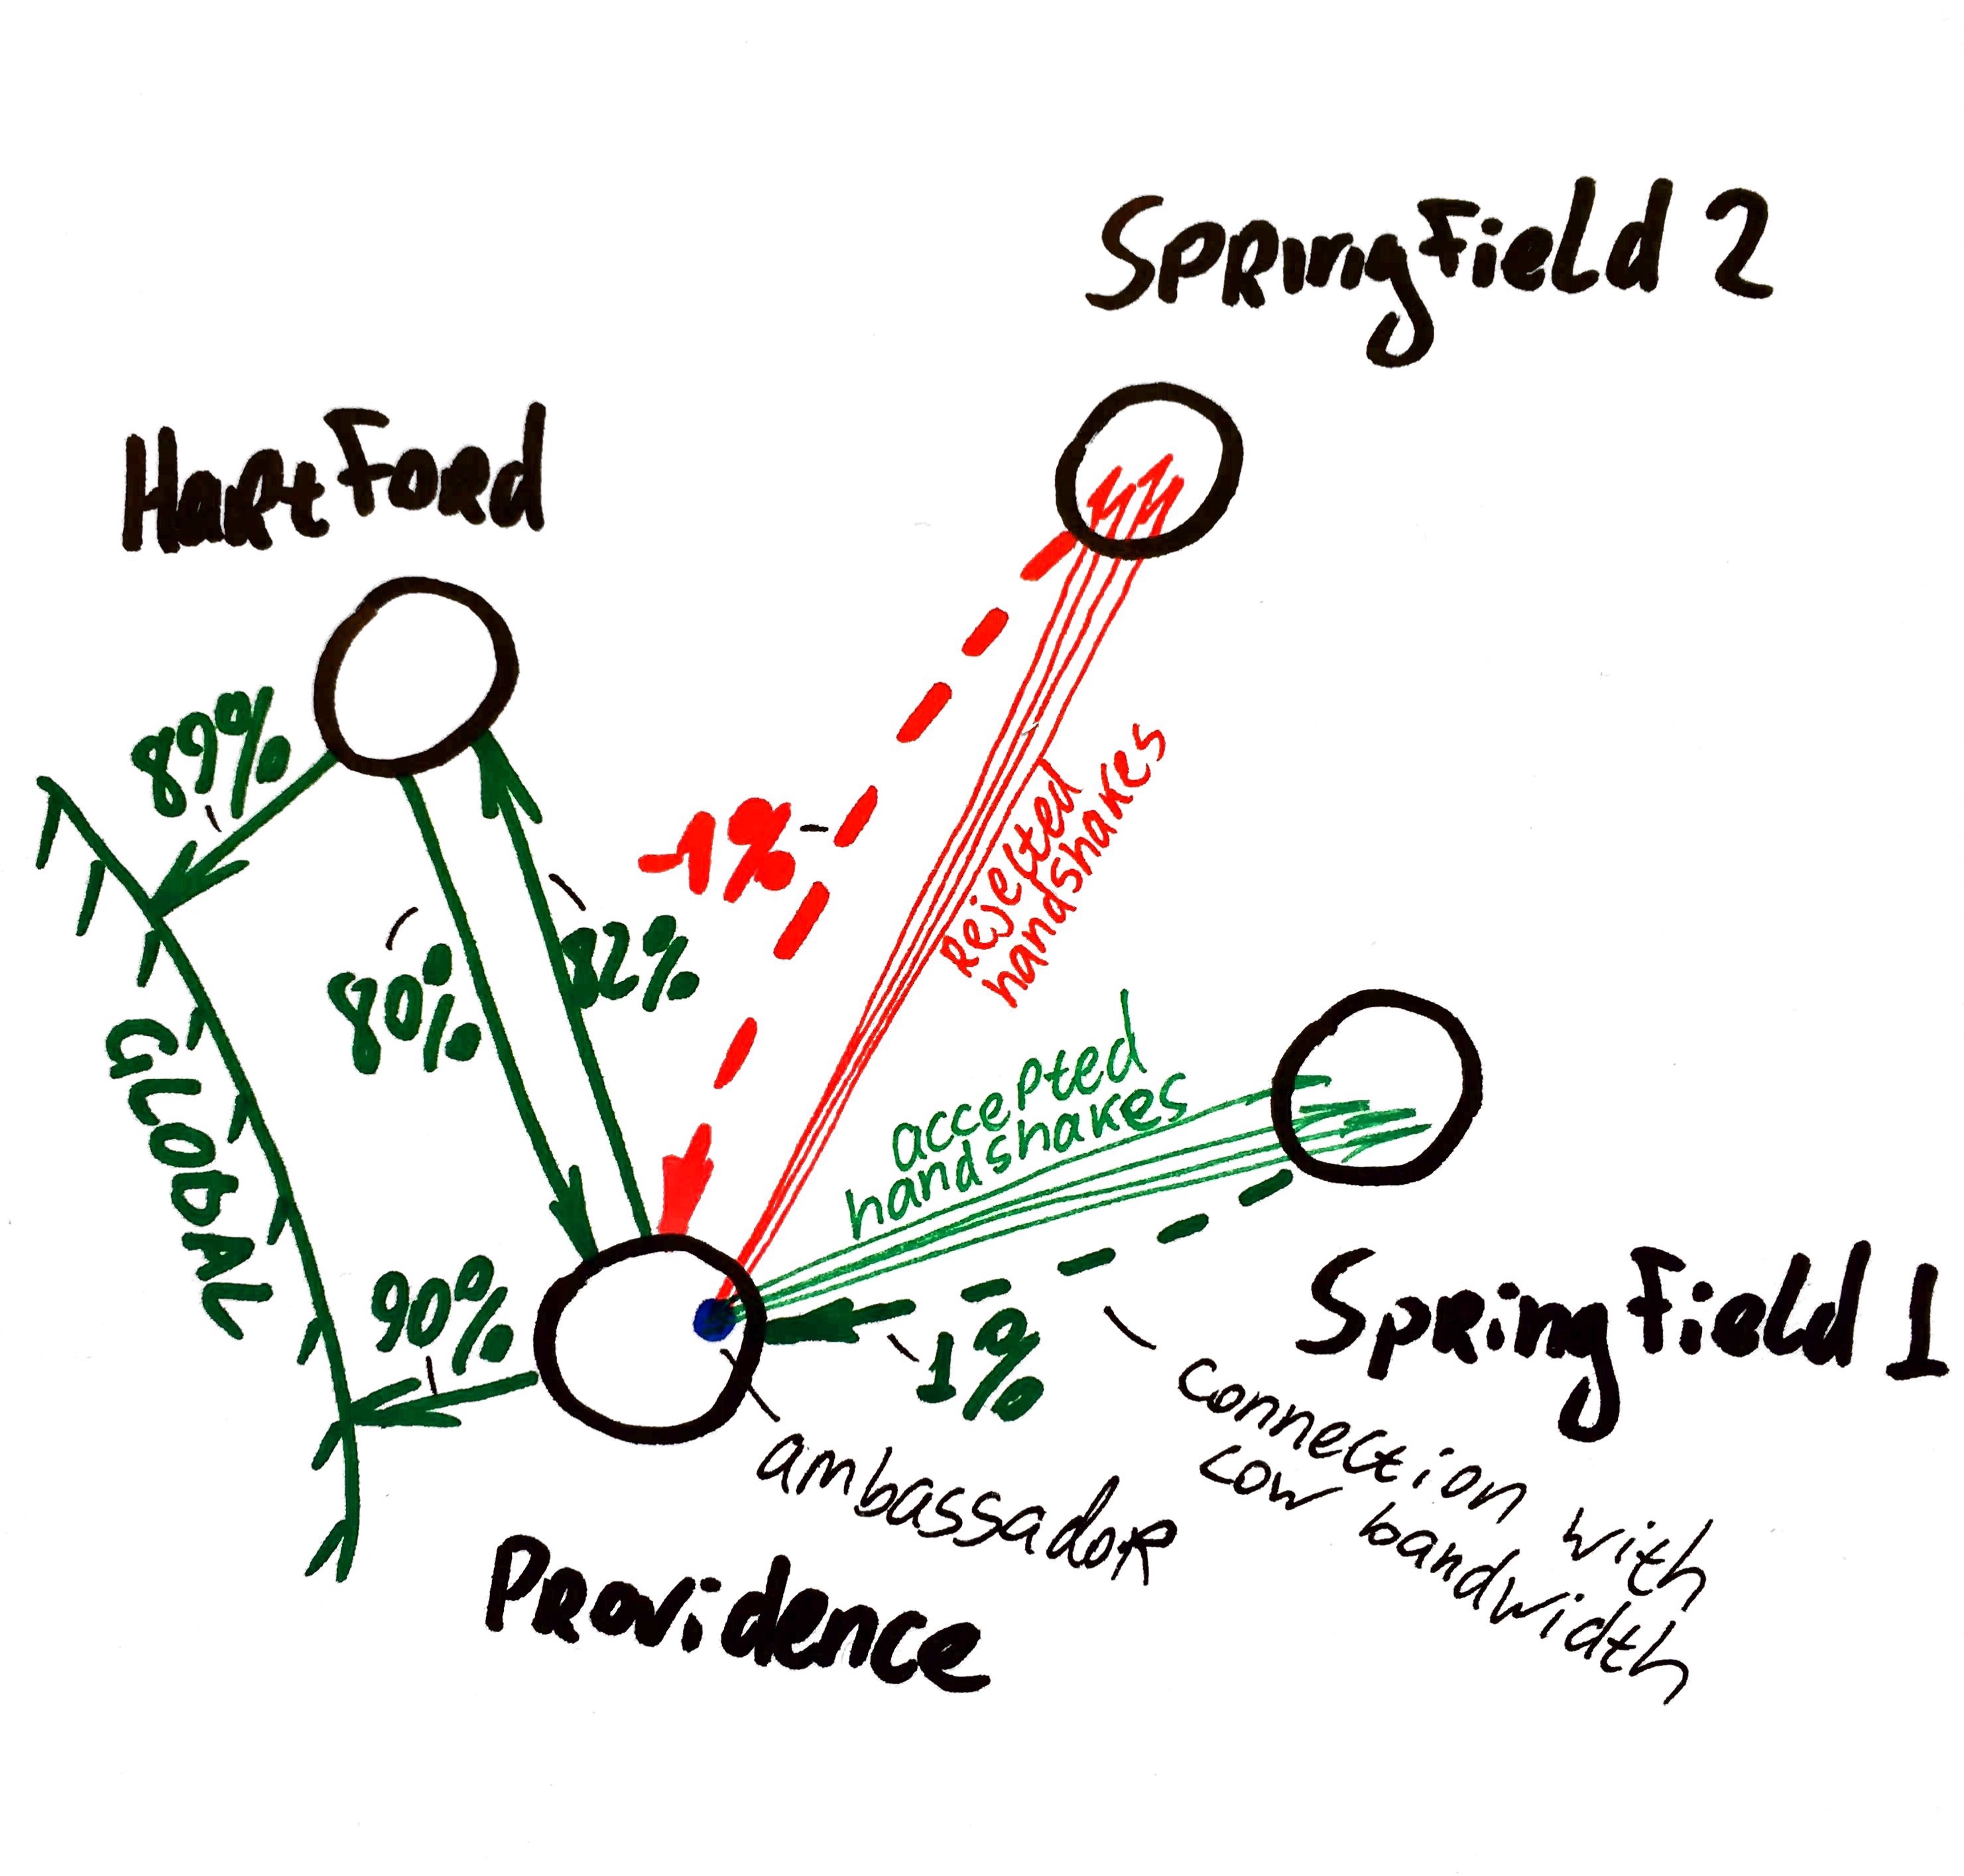 Springfield 2
Hartford
89%
-1%
80%
82%
rejected
handshakes
accepted
handshakes
GLOBAL
90%
1%
Springfield 1
connection with
low bandwidth
ambassador
Providence